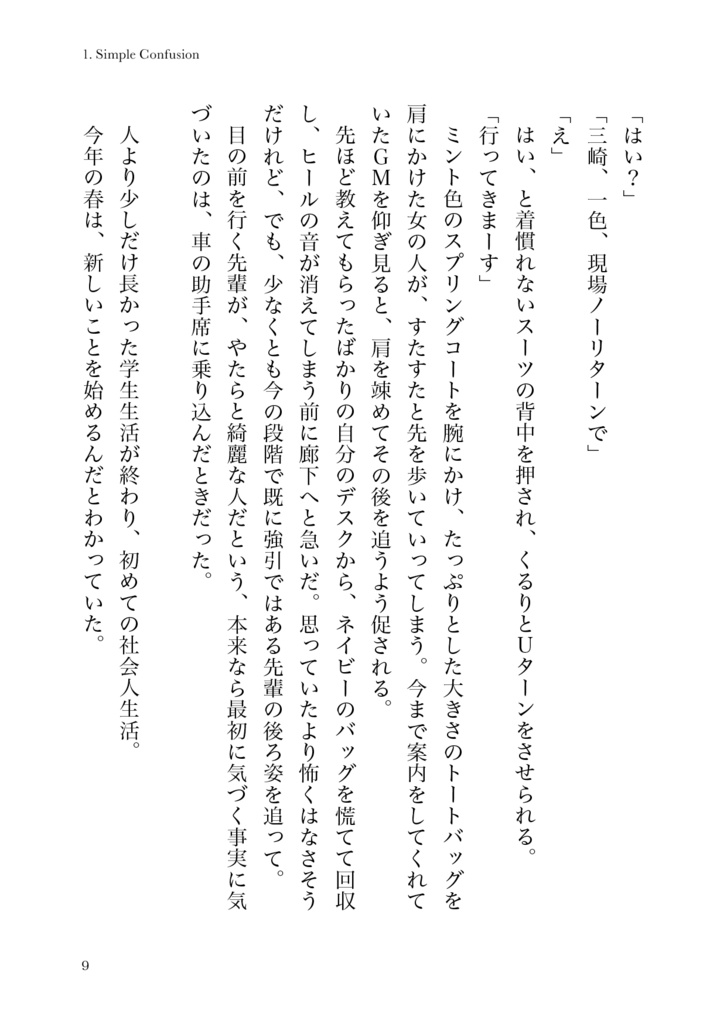 1. Simple Confusion
「はい？」
「三崎、一色、現場ノーリターンで」
「え」
はい、と着慣れないスーツの背中を押され、くるりとUターンをさせられる。
「行ってきまーす」
ミント色のスプリングコートを腕にかけ、たっぷりとした大きさのトートバッグを
肩にかけた女の人が、すたすたと先を歩いていってしまう。今まで案内をしてくれて
いたGMを仰ぎ見ると、肩を竦めてその後を追うよう促される。
先ほど教えてもらったばかりの自分のデスクから、ネイビーのバッグを慌てて回収
し、ヒールの音が消えてしまう前に廊下へと急いだ。思っていたより怖くはなさそう
だけれど、でも、少なくとも今の段階で既に強引ではある先輩の後ろ姿を追って。
目の前を行く先輩が、やたらと綺麗な人だという、本来なら最初に気づく事実に気
づいたのは、車の助手席に乗り込んだときだった。
人より少しだけ長かった学生生活が終わり、初めての社会人生活。
今年の春は、新しいことを始めるんだとわかっていた。
9